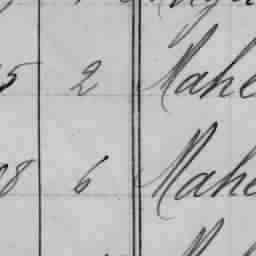 5 2 Mahe
8 6 Mahe